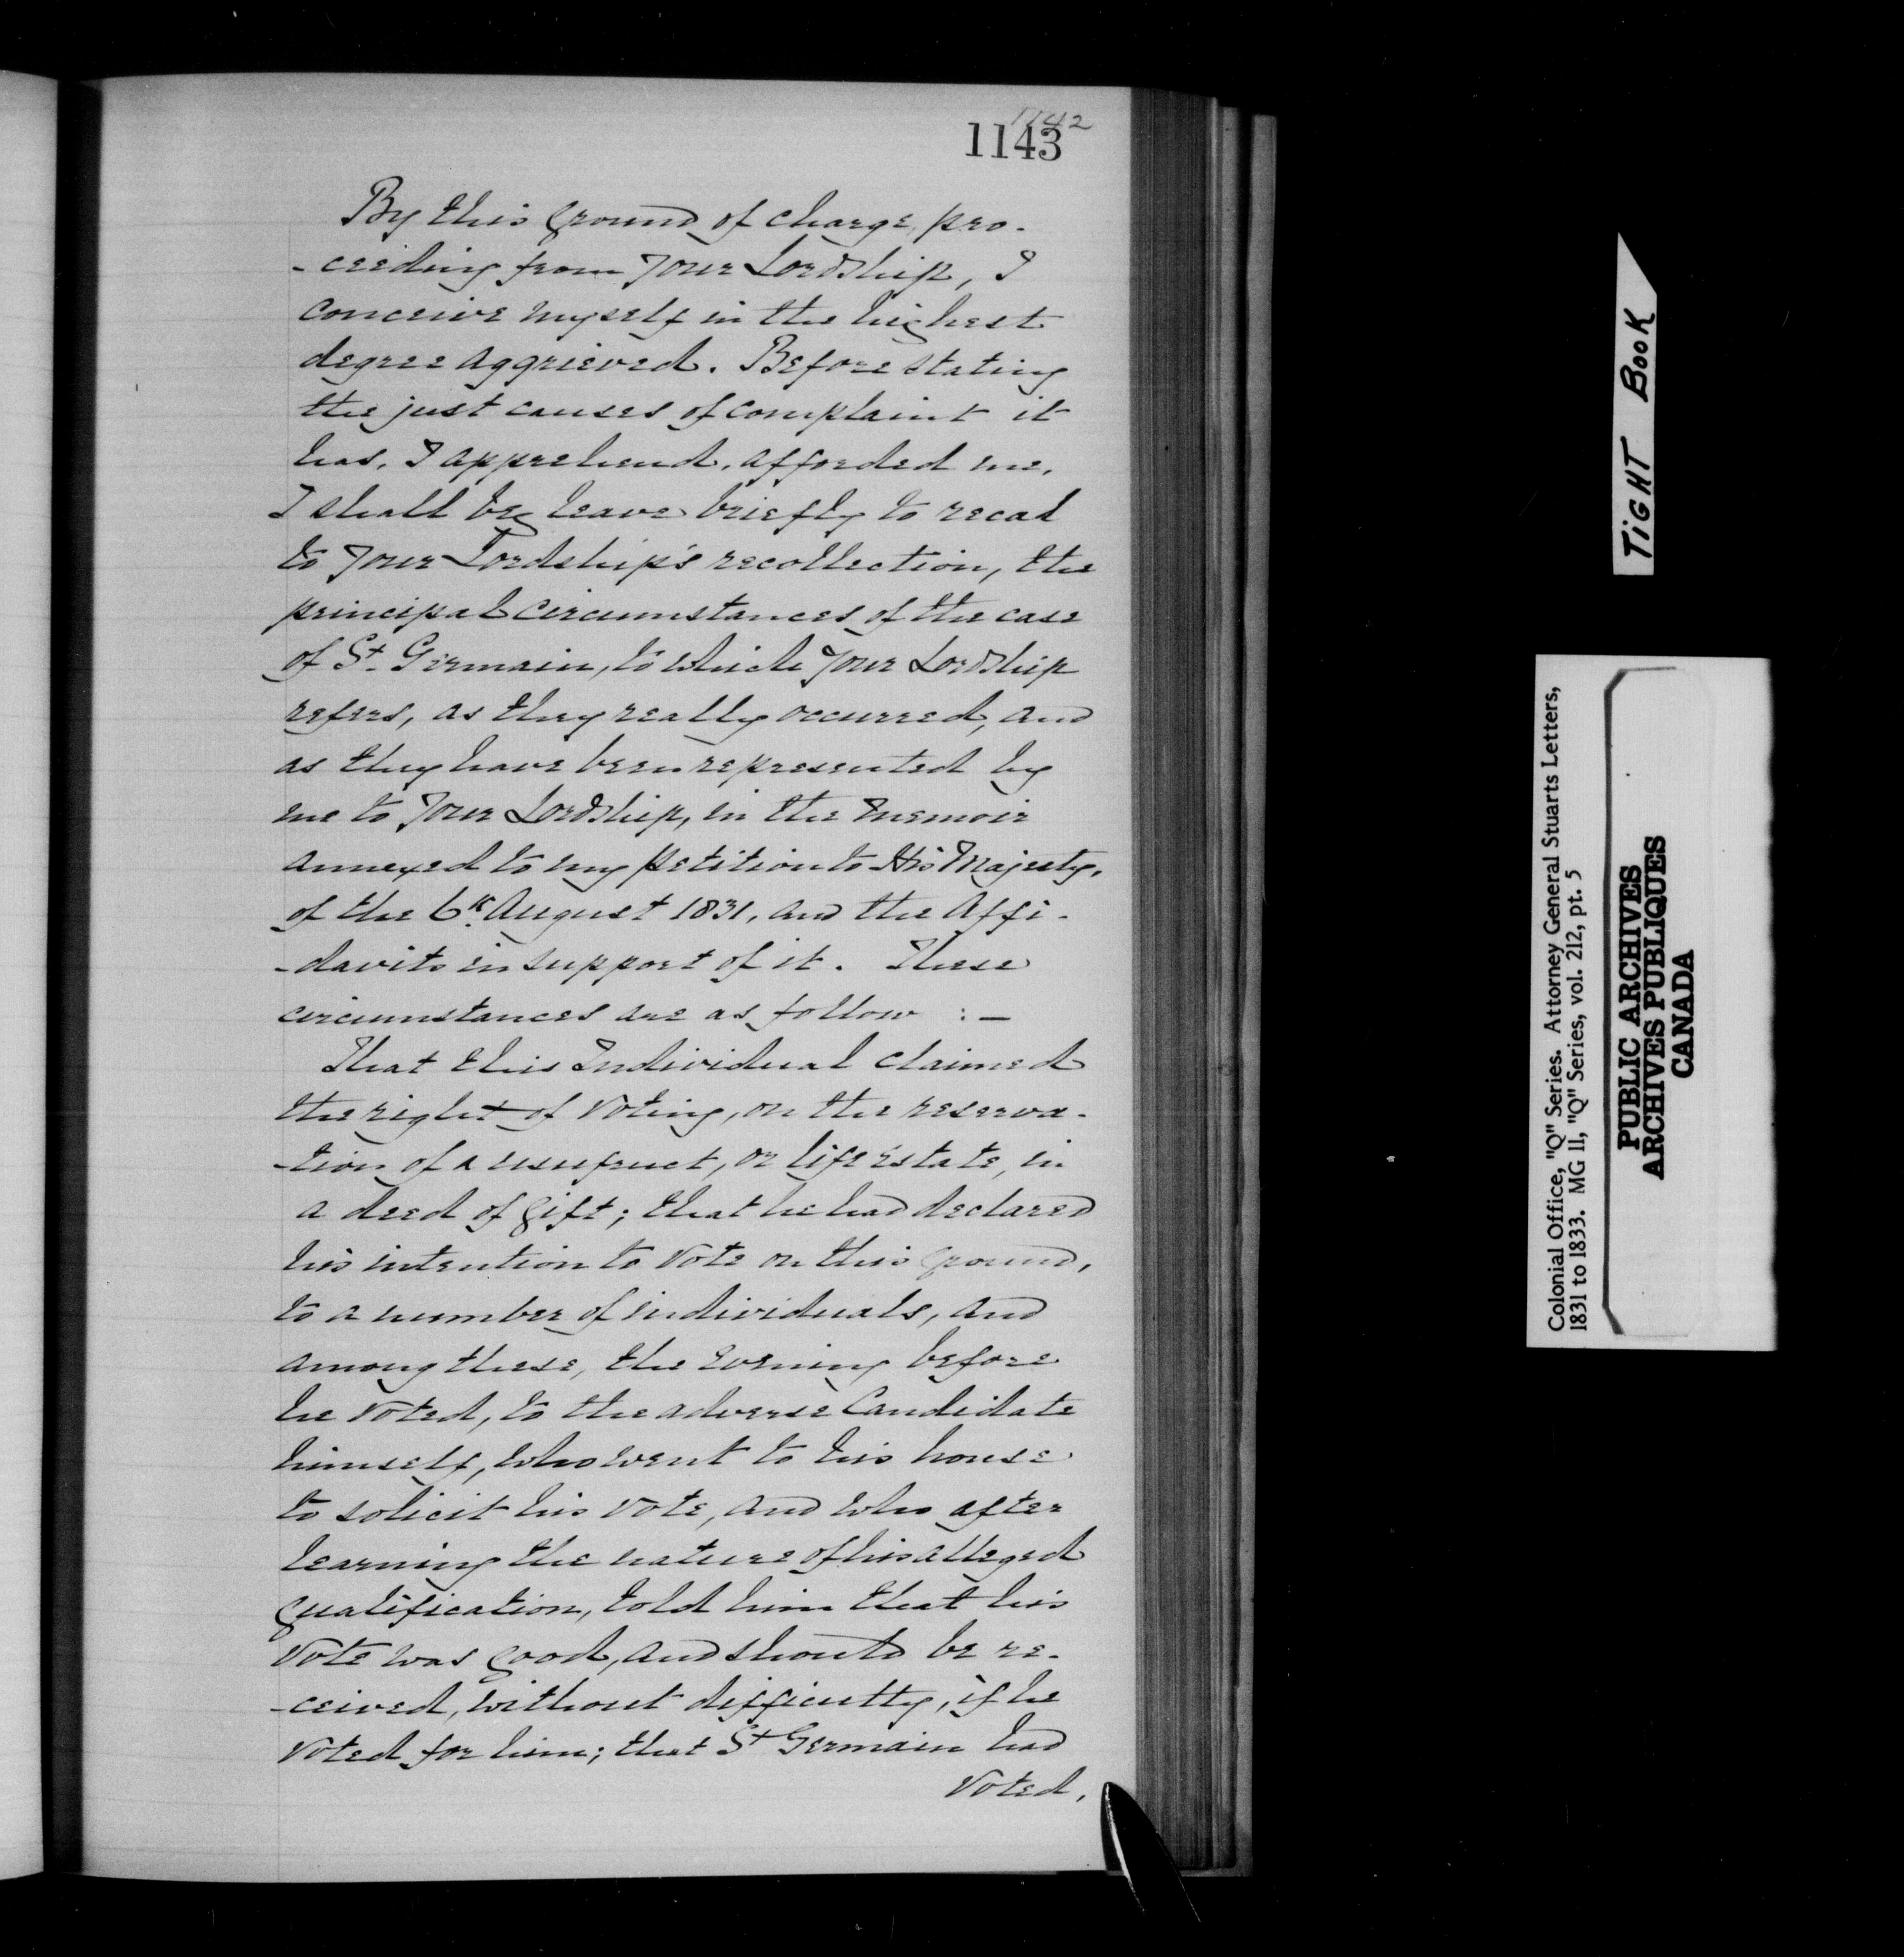 1142
1143
By this ground of charge, pro-
-ceeding from Your Lordship, I
conceive myself in the highest
degree aggrieved. Before stating
the just causes of complaint it
has, I apprehend, afforded me,
I shall beg leave briefly to recal
to Your Lordship's recollection, the
principal circumstances of the case
of St. Germain, to which Your Lordship
refers, as they really occurred, and
as they have been represented by
me to Your Lordship, in the Memoir
annexed to my petition to His Majesty,
of the 6th August 1831, and the Affi-
-davits in support of it. These
circumstances are as follow :—
That this Individual claimed
the right of voting, on the reserva-
-tion of a usufruct, or life estate, in
a deed of gift; that he had declared
his intention to vote on this ground,
to a number of individuals, and
among these, the evening before
he voted, to the adverse Candidate
himself, who went to his house
to solicit his vote, and who after
learning the nature of his alleged
qualification, told him that his
vote was good, and should be re-
-ceived, without difficulty, if he
voted for him; that St Germain had
voted,
TIGHT BOOK
Colonial Office, "Q" Series. Attorney General Stuarts Letters,
1831 to 1833. MG 11, "Q" Series, vol. 212, pt. 5
PUBLIC ARCHIVES
ARCHIVES PUBLIQUES
CANADA